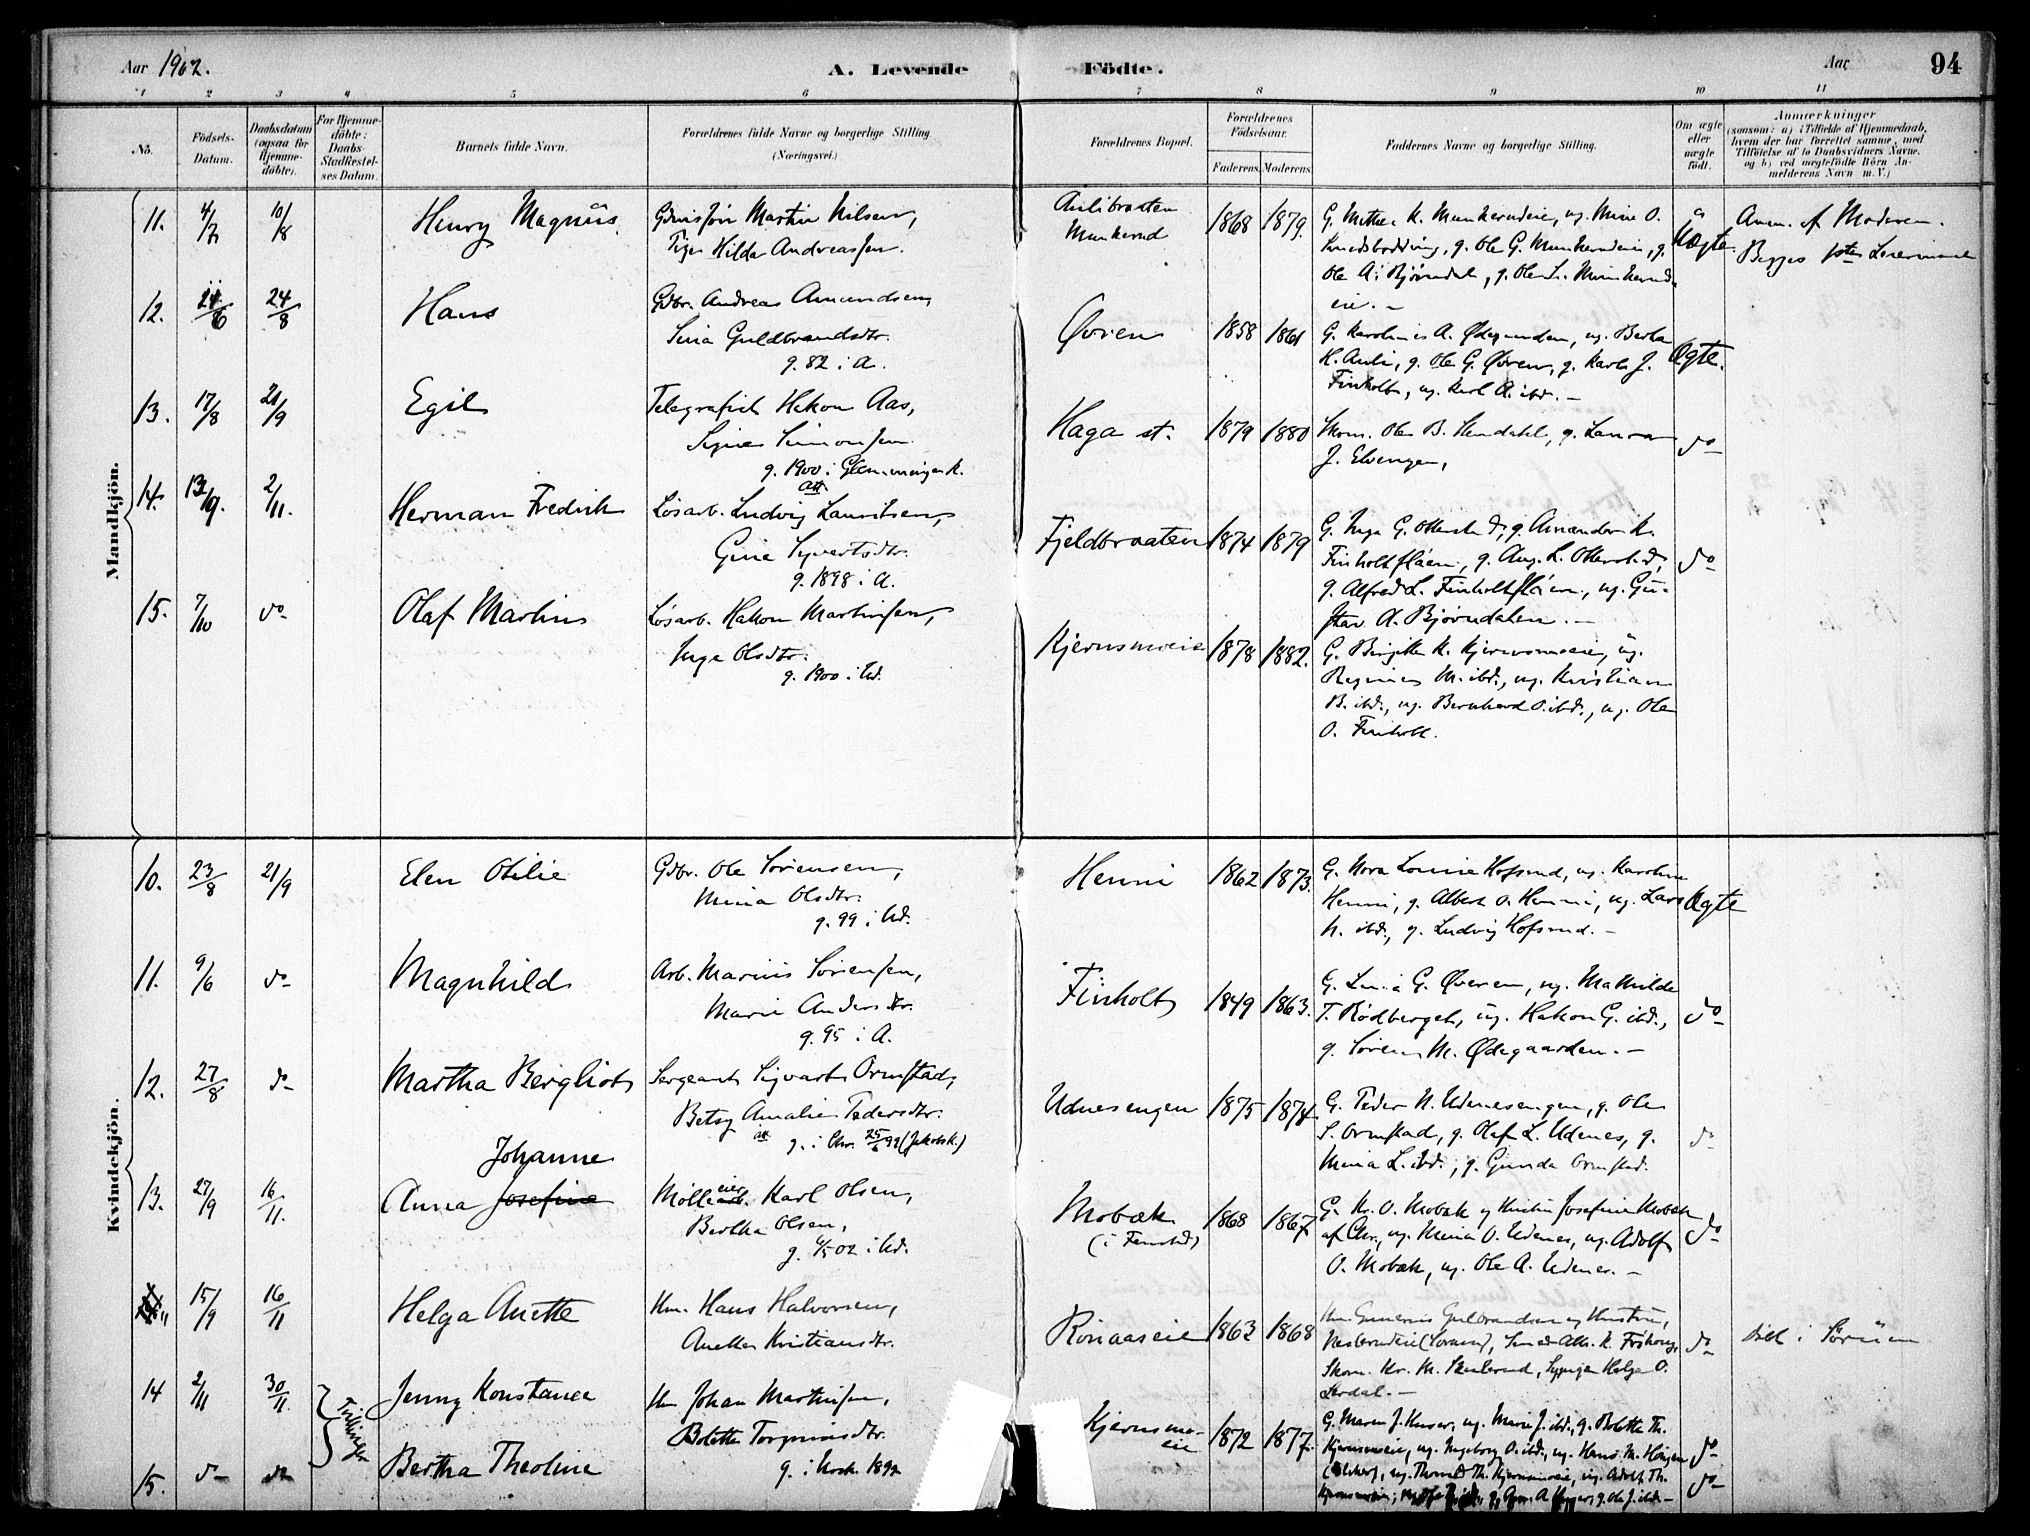 Aar 1902.
A. Levende Födte.
Aar
94
1 2 3 4 5 6 7 8 9 10 11
No.
Födsels-
Datum.
Daabsdatum
(ogsaa for
Hjemme-
döbte).
For Hjemme-
döbte:
Daabs-
Stadfæstel-
ses Datum.
Barnets fulde Navn.
Forældrenes fulde Navne og borgerlige Stilling.
(Næringsvei.)
Forældrenes Bopæl.
Forældrenes
Födselsaar.
Faderens. Moderens.
Faddernes Navne og borgerlige Stilling.
Om ægte
eller
uægte
födt.
Anmærkninger
(saasom: a) i Tilfælde af Hjemmedaab,
hvem der har forrettet samme, med
Tilföielse af to Daabsvidners Navne,
og b) ved uægtefödte Börn An-
melderens Navn m. V.)
Mandkjön.
11. 4/7 10/8 Henry Magnus.
Martin Nilsen,
Pige Hilda Andreassen.
Aulibraaten
Munkerud
1868 1879.
Uægte.
Anm. af Moderen.
Begges 1ste Leiermaal
12. 24/6 24/8 Hans
Gdbr. Andreas Amundsen,
Sina Guldbrandsdtr.
g. 82 i A.
Øvren
1858 1861
G. Karolines A. Ødegaarden, ug. Berta
H. Auli, g. Ole G. Øvren, g. Karl J.
Finholt, ug. Karl A. ibd. -
Ægte.
13. 17/8 21/9 Egil
Telegrafist Hakon Aas,
Signe Simonsen
g. 1900 i Glemmingen k.
Haga st.
1879 1880
Skom. Ole B. Hendahl, g. Laura
J. Elvengen,
do
14. 13/9. 2/11. Herman Fredrik
Løsarb. Ludvig Lauritsen,
Gina Syvertsdtr.
g. 1898 i A.
Fjeldbraaten
1874 1879
G. Inga G. Ottersta d, g. Amandor K.
Finholtflåen, g. Aug. L. Ottersted,
g. Alfred L. Finholtflåen, ug. Gu-
stav A. Bjørndalen. -
do
15. 7/10 do Olaf Marlius
Løsarb. Hakon Martinsen,
Inga Olsdtr.
g. 1900 i Ud.
Kjernsmoeie
1878 1882.
G. Birgitte K. Kjernsmoeie, ug.
Regines M. ibd., ug. Kristian
B. ibd., ug. Bernhard O. ibd., ug. Ole
O. Finholt.
Kvindekjön.
10. 23/8 21/9 Elen Otilie
Gdbr. Ole Sørensen,
Mina Olsdtr.
g. 99 i Ud.
Henni
1862 1873.
G. Nora Lovise Hofsrud, ug. Karoline
Henni, g. Albert O. Henni, ug. Lars
N. ibd., g. Ludvig Hofsrud. -
Ægte
11. 9/6 do Magnhild
Arb. Marius Sørensen,
Marie Andersdtr.
g. 95 i A.
Finholt
1849 1863.
G. Lina G. Øveren, ug. Mathilde
T. Rødberget, ug. Hakon G. ibd.,
g. Søren M. Ødegaarden. -
do
12. 27/8 do Martha Bergliot
Sergeant Sigvart Ormstad,
Betsy Amalie Pedersdtr.
g. i Chr. 25/6 99 (Jakobsk.)
Udnesengen
1875 1874
G. Peder N. Udenesengen, g. Ole
S. Ormstad, g. Olaf L. Udenes, g.
Mina L. ibd., g. Gunda Ormstad.
do
Johanne
13. 27/9 16/11. Anna Josefine
Mølleeier Karl Olsen,
Bertha Olsen,
g. 4/5 02 i Ud.
Mobæk
(i Fenstad)
1868 1867
G. Kr. O. Mobæk og Hustru Josefine Mobæk
af Chr., ug. Mina O. Udenes, ug. Adolf
O. Mobæk, ug. Ole A. Udenes. -
do
15/9 16/11 Helga Anette
Hm. Hans Halvorsen,
Anette Kristiansdtr.
Rønaaseie
1863 1868
Hm. Gunerius Gulbrandsen og Hustru,
Skom. Kr. M. Skulerud, Sypige Helga O.
Lerdal. -
do
i Sørum
14 2/11 30/11. Jenny Konstance
Tvillinger
Hm Johan Martinsen,
Bolette Torgrimsdtr.
g. i Nesk. 1892
Kjernsmo-
eie
1872 1877.
G. Maren J. Huser, ug. Marie J. ibd., g. Bolette Th.
Kjernsmoeie, ug. Ingeborg O. ibd., ug. Hans M. Haugen
do
15. do do Bertha Theoline
do